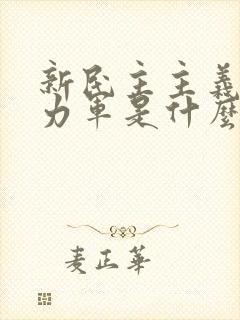 新民主主義
力軍是什麼
麦正華